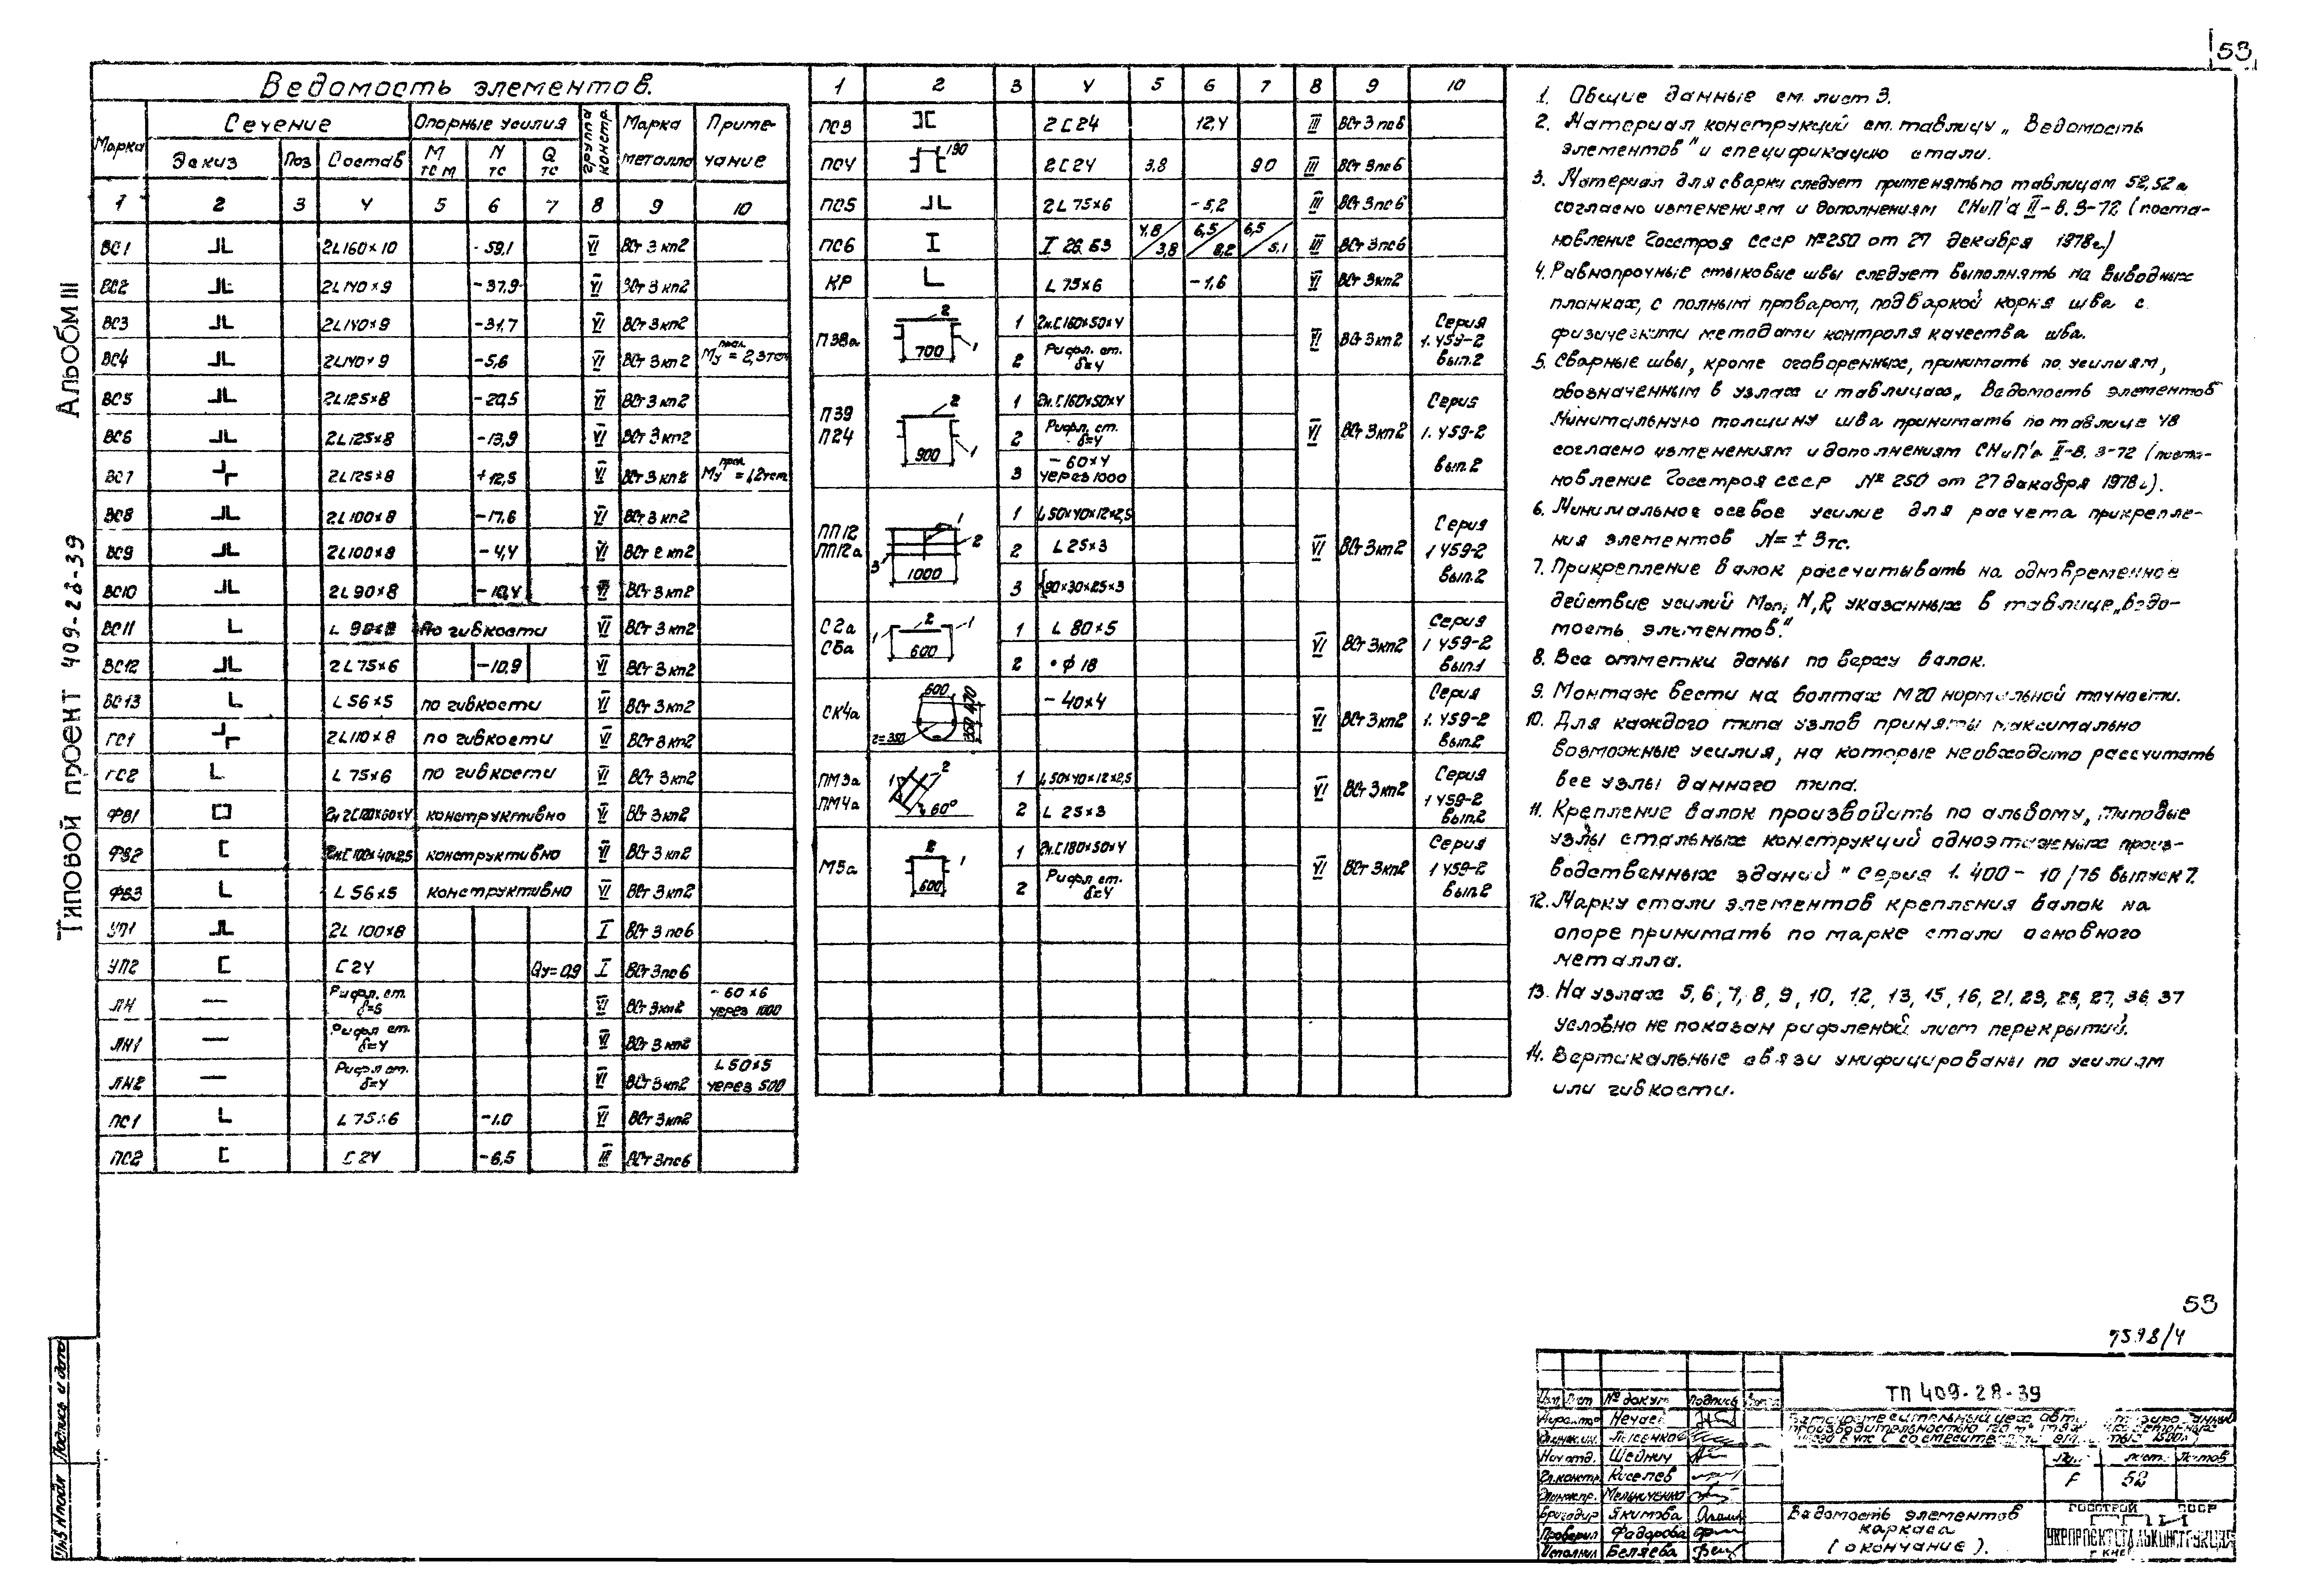 53
Альбом III
Типовой проект 409-28-39
Ведомость элементов.
Марка | Сечение | Опорные усилия | Группа констр. | Марка металла | Примечание
Эскиз | Поз | Состав | М тс м | N тс | Q тс
1 2 3 4 5 6 7 8 9 10
ВС1 2L160×10 -59,1 VI ВСт3кп2
ВС2 2L140×9 -37,9 VI ВСт3кп2
ВС3 2L140×9 -31,7 VI ВСт3кп2
ВС4 2L140×9 -5,6 VI ВСт3кп2 Му прол. = 2,3тсм
ВС5 2L125×8 -20,5 VI ВСт3кп2
ВС6 2L125×8 -13,9 VI ВСт3кп2
ВС7 2L125×8 +12,5 VI ВСт3кп2 Му прол. = 1,2тсм
ВС8 2L100×8 -17,6 VI ВСт3кп2
ВС9 2L100×8 -4,4 VI ВСт 2 кп2
ВС10 2L90×8 -10,4 VI ВСт3кп2
ВС11 L 90×8 По гибкости VI ВСт3кп2
ВС12 2L75×6 -10,9 VI ВСт3кп2
ВС13 L56×5 по гибкости VI ВСт3кп2
ГС1 2L110×8 по гибкости VI ВСт3кп2
ГС2 L 75×6 по гибкости VI ВСт3кп2
ФВ1 конструктивно VI ВСт3кп2
ФВ2 Гн.С100×40×2,5 конструктивно VI ВСт3кп2
ФВ3 L56×5 конструктивно VI ВСт3кп2
УП1 2L 100×8 I ВСт3пс6
УП2 С24 Qу=0,9 I ВСт3пс6
ЛН Рифл. ст. δ=5 VI ВСт3кп2 -60×6 через 1000
ЛН1 Рифл. ст. δ=4 VI ВСт3кп2
ЛН2 Рифл. ст. δ=4 VI ВСт3кп2 L50×5 через 500
ПС1 L 75×6 -1.0 VI ВСт3кп2
ПС2 С24 -6,5 III ВСт3пс6
1 2 3 4 5 6 7 8 9 10
ПС3 2С24 12,4 III ВСт3пс6
ПС4 190 2С24 3,8 90 III ВСт3пс6
ПС5 2L 75×6 -5,2 III ВСт3пс6
ПС6 I 4,8/3,8 6,5/8,2 6,5/5,1 III ВСт3пс6
КР L 75×6 -1,6 VI ВСт3кп2
П38а 2 700 1 1 Гн.С160×50×4 VI ВСт3кп2 Серия 1.459-2 вып.2
2 Рифл. ст. δ=4
П39 П24 2 900 1 1 Гн.С160×50×4 VI ВСт3кп2 Серия 1.459-2 вып.2
2 Рифл. ст. δ=4
3 -60×4 через 1000
ПП12 ПП12а 1 2 3 1000 1 L50×40×12×2,5 VI ВСт3кп2 Серия 1 459-2 вып.2
2 L25×3
3 90×30×25×3
С2а С6а 1 2 1 600 1 L 80×5 VI ВСт3кп2 Серия 1 459-2 вып.1
2 • ф 18
СК4а 600 r=350 -40×4 VI ВСт3кп2 Серия 1.459-2 вып.2
ПМ3а ПМ4а 1 2 60° 1 L50×40×12×2,5 VI ВСт3кп2 Серия 1 459-2 вып.2
2 L 25×3
М5а 2 1 600 1 Гн.С180×50×4 VI ВСт3кп2 Серия 1 459-2 вып.2
2 Рифл. ст. δ=4
1. Общие данные см. лист 3.
2. Материал конструкций см. таблицу „Ведомость
элементов" и спецификацию стали.
3. Материал для сварки следует применять по таблицам 52,52а
согласно изменениям и дополнениям СНиП'а II-В.3-72 (поста-
новление Госстроя СССР №250 от 27 декабря 1978г.)
4. Равнопрочные стыковые швы следует выполнять на выводных
планках, с полным проваром, подваркой корня шва с
физическими методами контроля качества шва.
5. Сварные швы, кроме оговоренных, принимать по усилиям,
обозначенным в узлах и таблицах „Ведомость элементов"
Минимальную толщину шва принимать по таблице 48
согласно изменениям и дополнениям СНиП'а II-В.3-72 (поста-
новление Госстроя СССР № 250 от 27 декабря 1978г.).
6. Минимальное осевое усилие для расчета прикрепле-
ния элементов N= ± 3тс.
7. Прикрепление балок рассчитывать на одновременное
действие усилий Моп, N,R указанных в таблице„Ведо-
мость элементов."
8. Все отметки даны по верху балок.
9. Монтаж вести на болтах М20 нормальной точности.
10. Для каждого типа узлов приняты максимально
возможные усилия, на которые необходимо рассчитать
все узлы данного типа.
11. Крепление балок производить по альбому „Типовые
узлы стальных конструкций одноэтажных произ-
водственных зданий" Серия 1.400-10/76 выпуск 7.
12. Марку стали элементов крепления балок на
опоре принимать по марке стали основного
металла.
13. На узлах 5,6,7,8,9,10,12,13,15,16,21,23,25,27,36,37
условно не показан рифленый лист перекрытий.
14. Вертикальные связи унифицированы по усилиям
или гибкости.
53
7598/4
ТП 409-28-39
Изм Лист № докум Подпись
Нечаев
Лысенко
Нач отд. Шейнич
Гл.констр. Киселев
Мельниченко
Бригадир Якимова
Проверил Фадорова
Исполнил Беляева
лист Листов
Р 52
Ведомость элементов
каркаса
(окончание).
ГОССТРОЙ СССР
УКРПРОЕКТСТАЛЬКОНСТРУКЦИЯ
г Киев
Инв № подл Подпись и дата